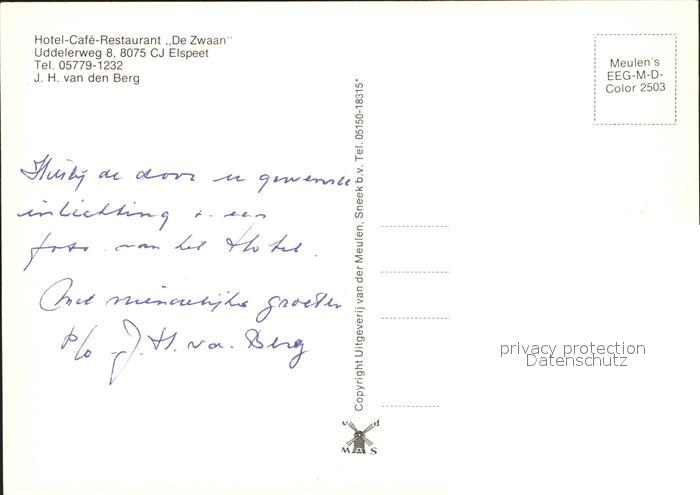 Hotel-Café-Restaurant „De Zwaan"
Uddelerweg 8, 8075 CJ Elspeet
Tel. 05779-1232
J. H. van den Berg
Meulen's
EEG-M-D-
Color 2503
Hierbij de door u gewenste
inlichting + een
foto van het Hotel.
Met vriendelijke groeten
P/o J. H. v.d. Berg
Copyright Uitgeverij van der Meulen, Sneek b.v. Tel. 05150-18315*
v d
M S
privacy protection
Datenschutz